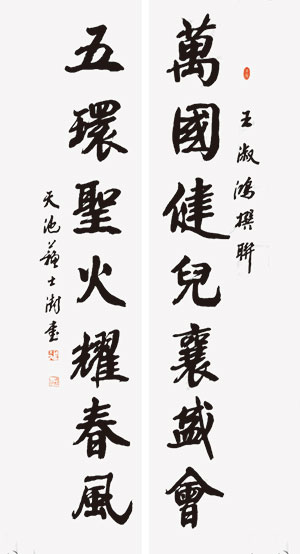 萬國健兒襄盛會
王淑鴻撰聯
五環聖火耀春風
天池蘇士澍書